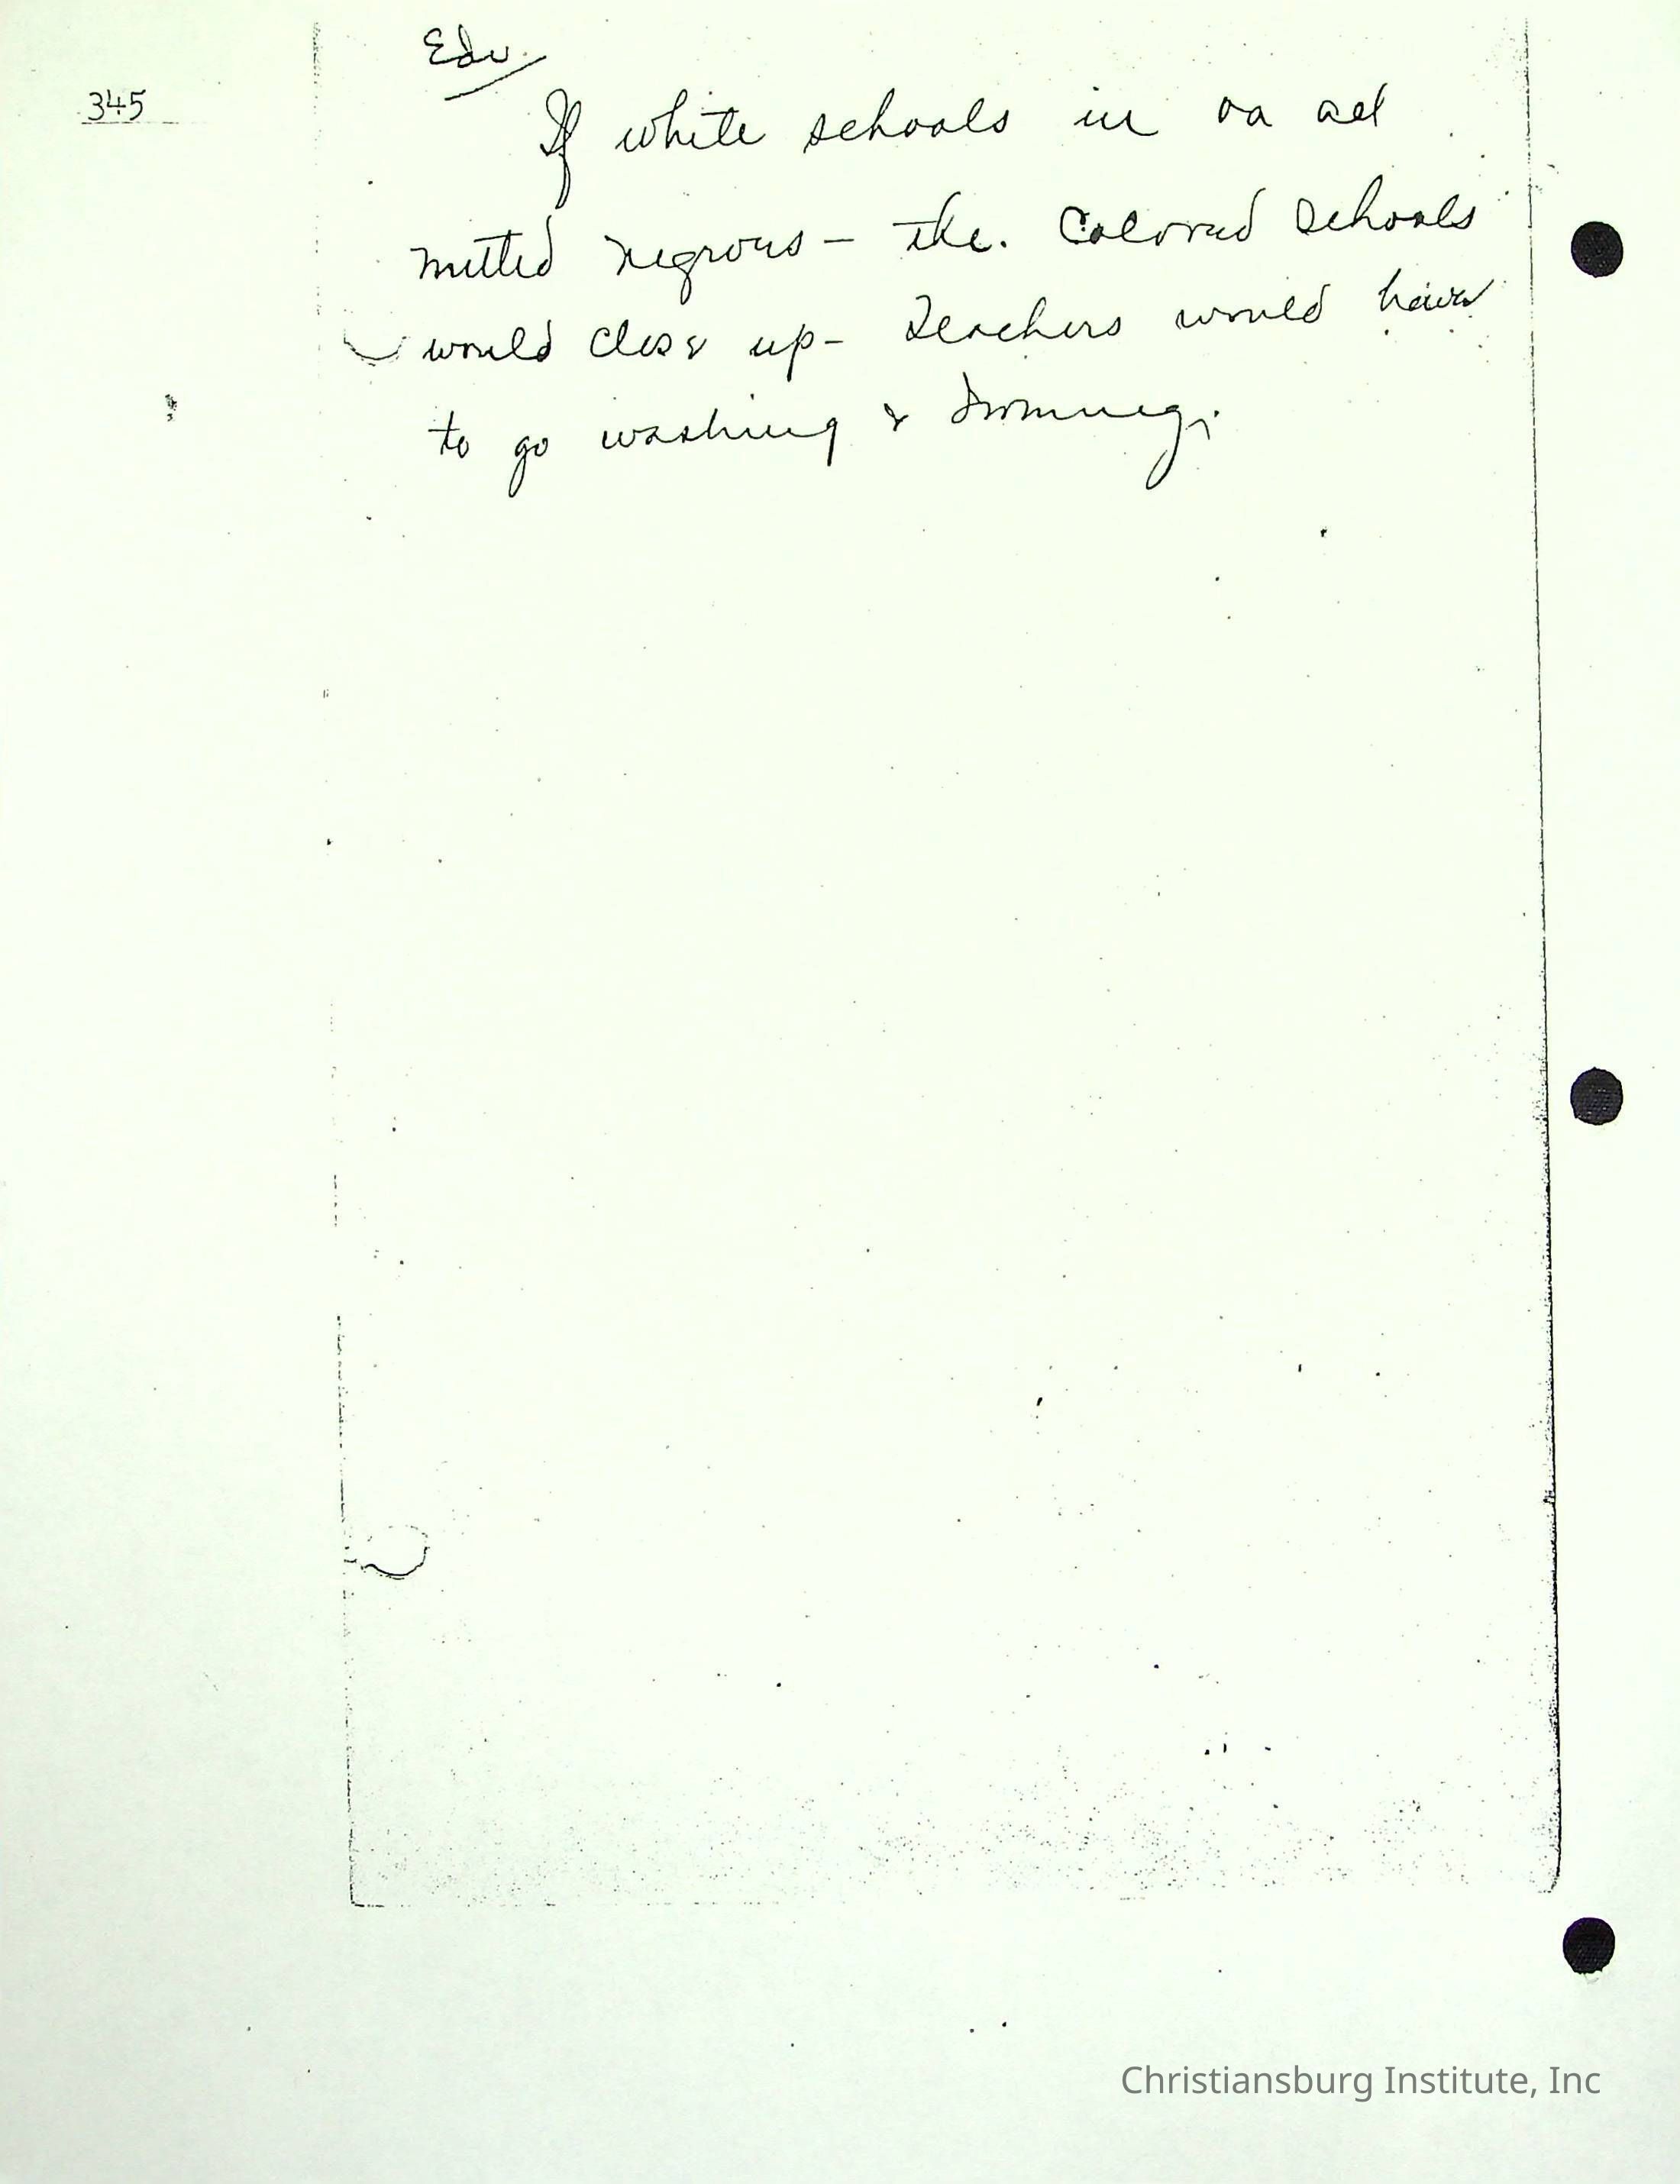 Edu.
345
If white schools in va ad
mitted negroes - the. Colored Schools
would close up - Teachers would have
to go washing & Ironing.
Christiansburg Institute, Inc